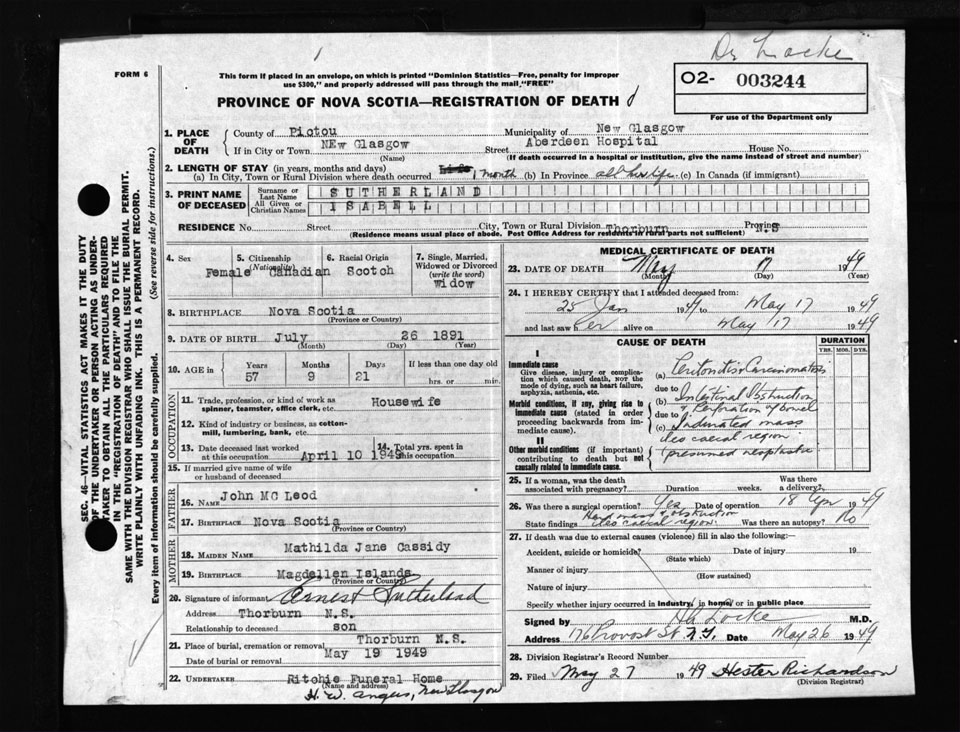 Dr Locke
1
FORM 6
This form if placed in an envelope, on which is printed "Dominion Statistics—Free, penalty for improper
use $300," and properly addressed will pass through the mail "FREE"
O2- 003244
PROVINCE OF NOVA SCOTIA—REGISTRATION OF DEATH
For use of the Department only
1. PLACE OF DEATH County of Pictou Municipality of New Glasgow
If in City or Town NEw Glasgow (Name) Street Aberdeen Hospital House No.
(If death occurred in a hospital or institution, give the name instead of street and number)
2. LENGTH OF STAY (in years, months and days)
(a) In City, Town or Rural Division where death occurred 1 month (b) In Province all her life (c) In Canada (if immigrant)
3. PRINT NAME OF DECEASED Surname or Last Name SUTHERLAND
All Given or Christian Names ISABELL
RESIDENCE No. Street City, Town or Rural Division Thorburn Province N.S
(Residence means usual place of abode. Post Office Address for residents in rural parts not sufficient)
4. Sex Female
5. Citizenship (Nationality) Canadian
6. Racial Origin Scotch
7. Single, Married, Widowed or Divorced (write the word) widow
8. BIRTHPLACE Nova Scotia
(Province or Country)
9. DATE OF BIRTH July 26 1891
(Month) (Day) (Year)
10. AGE in Years 57 Months 9 Days 21 If less than one day old hrs. or min.
OCCUPATION
11. Trade, profession, or kind of work as spinner, teamster, office clerk, etc. Housewife
12. Kind of industry or business, as cotton-mill, lumbering, bank, etc.
13. Date deceased last worked at this occupation April 10 1949
14. Total yrs. spent in this occupation
15. If married give name of wife or husband of deceased
FATHER
16. Name John MC Leod
17. Birthplace Nova Scotia
(Province or Country)
MOTHER
18. Maiden Name Mathilda Jane Cassidy
19. Birthplace Magdellen Islands
(Province or Country)
20. Signature of informant Ernest Sutherland
Address Thorburn N.S.
Relationship to deceased son
21. Place of burial, cremation or removal Thorburn N.S.
Date of burial or removal May 19 1949
22. Undertaker Ritchie Funeral Home
(Name and address)
H. W. Angus, New Glasgow
MEDICAL CERTIFICATE OF DEATH
23. DATE OF DEATH May 17 1949
(Month) (Day) (Year)
24. I HEREBY CERTIFY that I attended deceased from:
25 Jan 1949 to May 17 1949
and last saw her alive on May 17 1949
CAUSE OF DEATH
DURATION
YRS. MOS. DYS.
I
Immediate cause
Give disease, injury or complication which caused death, not the mode of dying, such as heart failure, asphyxia, asthenia, etc.
(a) Peritonitis Carcinomatosis
due to
Morbid conditions, if any, giving rise to immediate cause (stated in order proceeding backwards from immediate cause).
(b) Intestinal Obstruction
& Perforation of bowel
due to
(c) Indurated mass
ileo caecal region
II
Other morbid conditions (if important) contributing to death but not causally related to immediate cause.
presumed neoplastic
25. If a woman, was the death associated with pregnancy? Duration weeks. Was there a delivery?
26. Was there a surgical operation? Yes Date of operation 18 Apr 1949
State findings Hard mass & obstruction
ileo caecal region. Was there an autopsy? No
27. If death was due to external causes (violence) fill in also the following:—
Accident, suicide or homicide? Date of injury 19
(State which)
Manner of injury
(How sustained)
Nature of injury
Specify whether injury occurred in industry, in home or in public place
Signed by HA Locke M.D.
Address 176 Provost St N.G. Date May 26 1949
28. Division Registrar's Record Number
29. Filed May 27 1949 Hester Richardson
(Division Registrar)
SEC. 46—VITAL STATISTICS ACT MAKES IT THE DUTY
OF THE UNDERTAKER OR PERSON ACTING AS UNDERTAKER
TO OBTAIN ALL THE PARTICULARS REQUIRED
IN THE "REGISTRATION OF DEATH" AND TO FILE THE
SAME WITH THE DIVISION REGISTRAR WHO SHALL ISSUE THE BURIAL PERMIT.
WRITE PLAINLY WITH UNFADING INK. THIS IS A PERMANENT RECORD.
Every item of information should be carefully supplied. (See reverse side for instructions.)